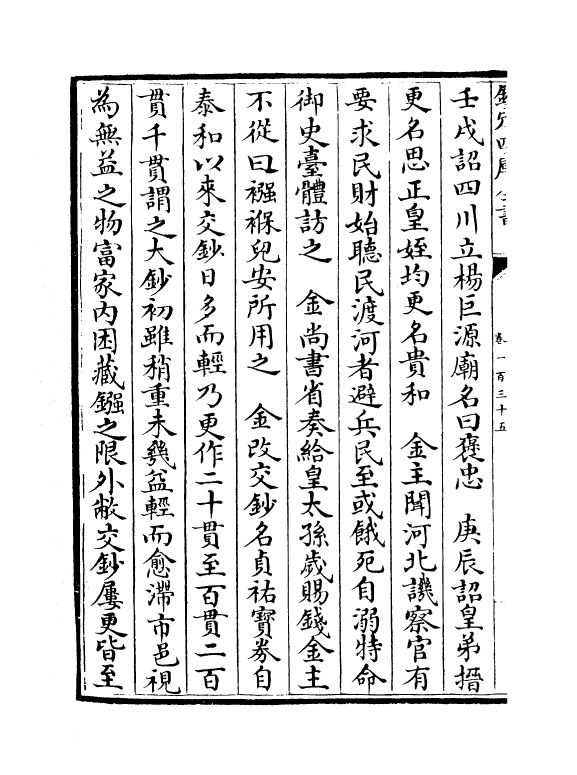 欽定四庫全書
卷一百三十五
壬戌詔四川立楊巨源廟名曰褒忠　庚辰詔皇弟搢
更名思正皇姪均更名貴和　金主聞河北譏察官有
要求民財始聽民渡河者避兵民至或餓死自溺特命
御史臺體訪之　金尚書省奏給皇太孫歲賜錢金主
不從曰襁褓兒安所用之　金改交鈔名貞祐寶券自
泰和以來交鈔日多而輕乃更作二十貫至百貫二百
貫千貫謂之大鈔初雖稍重未幾益輕而愈滯市邑視
為無益之物富家内困藏鏹之限外敝交鈔屢更皆至